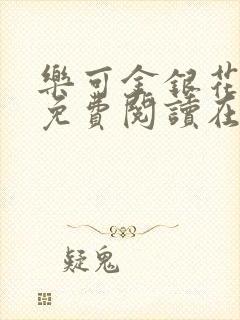 樂可金銀花
免費閱讀在
疑鬼